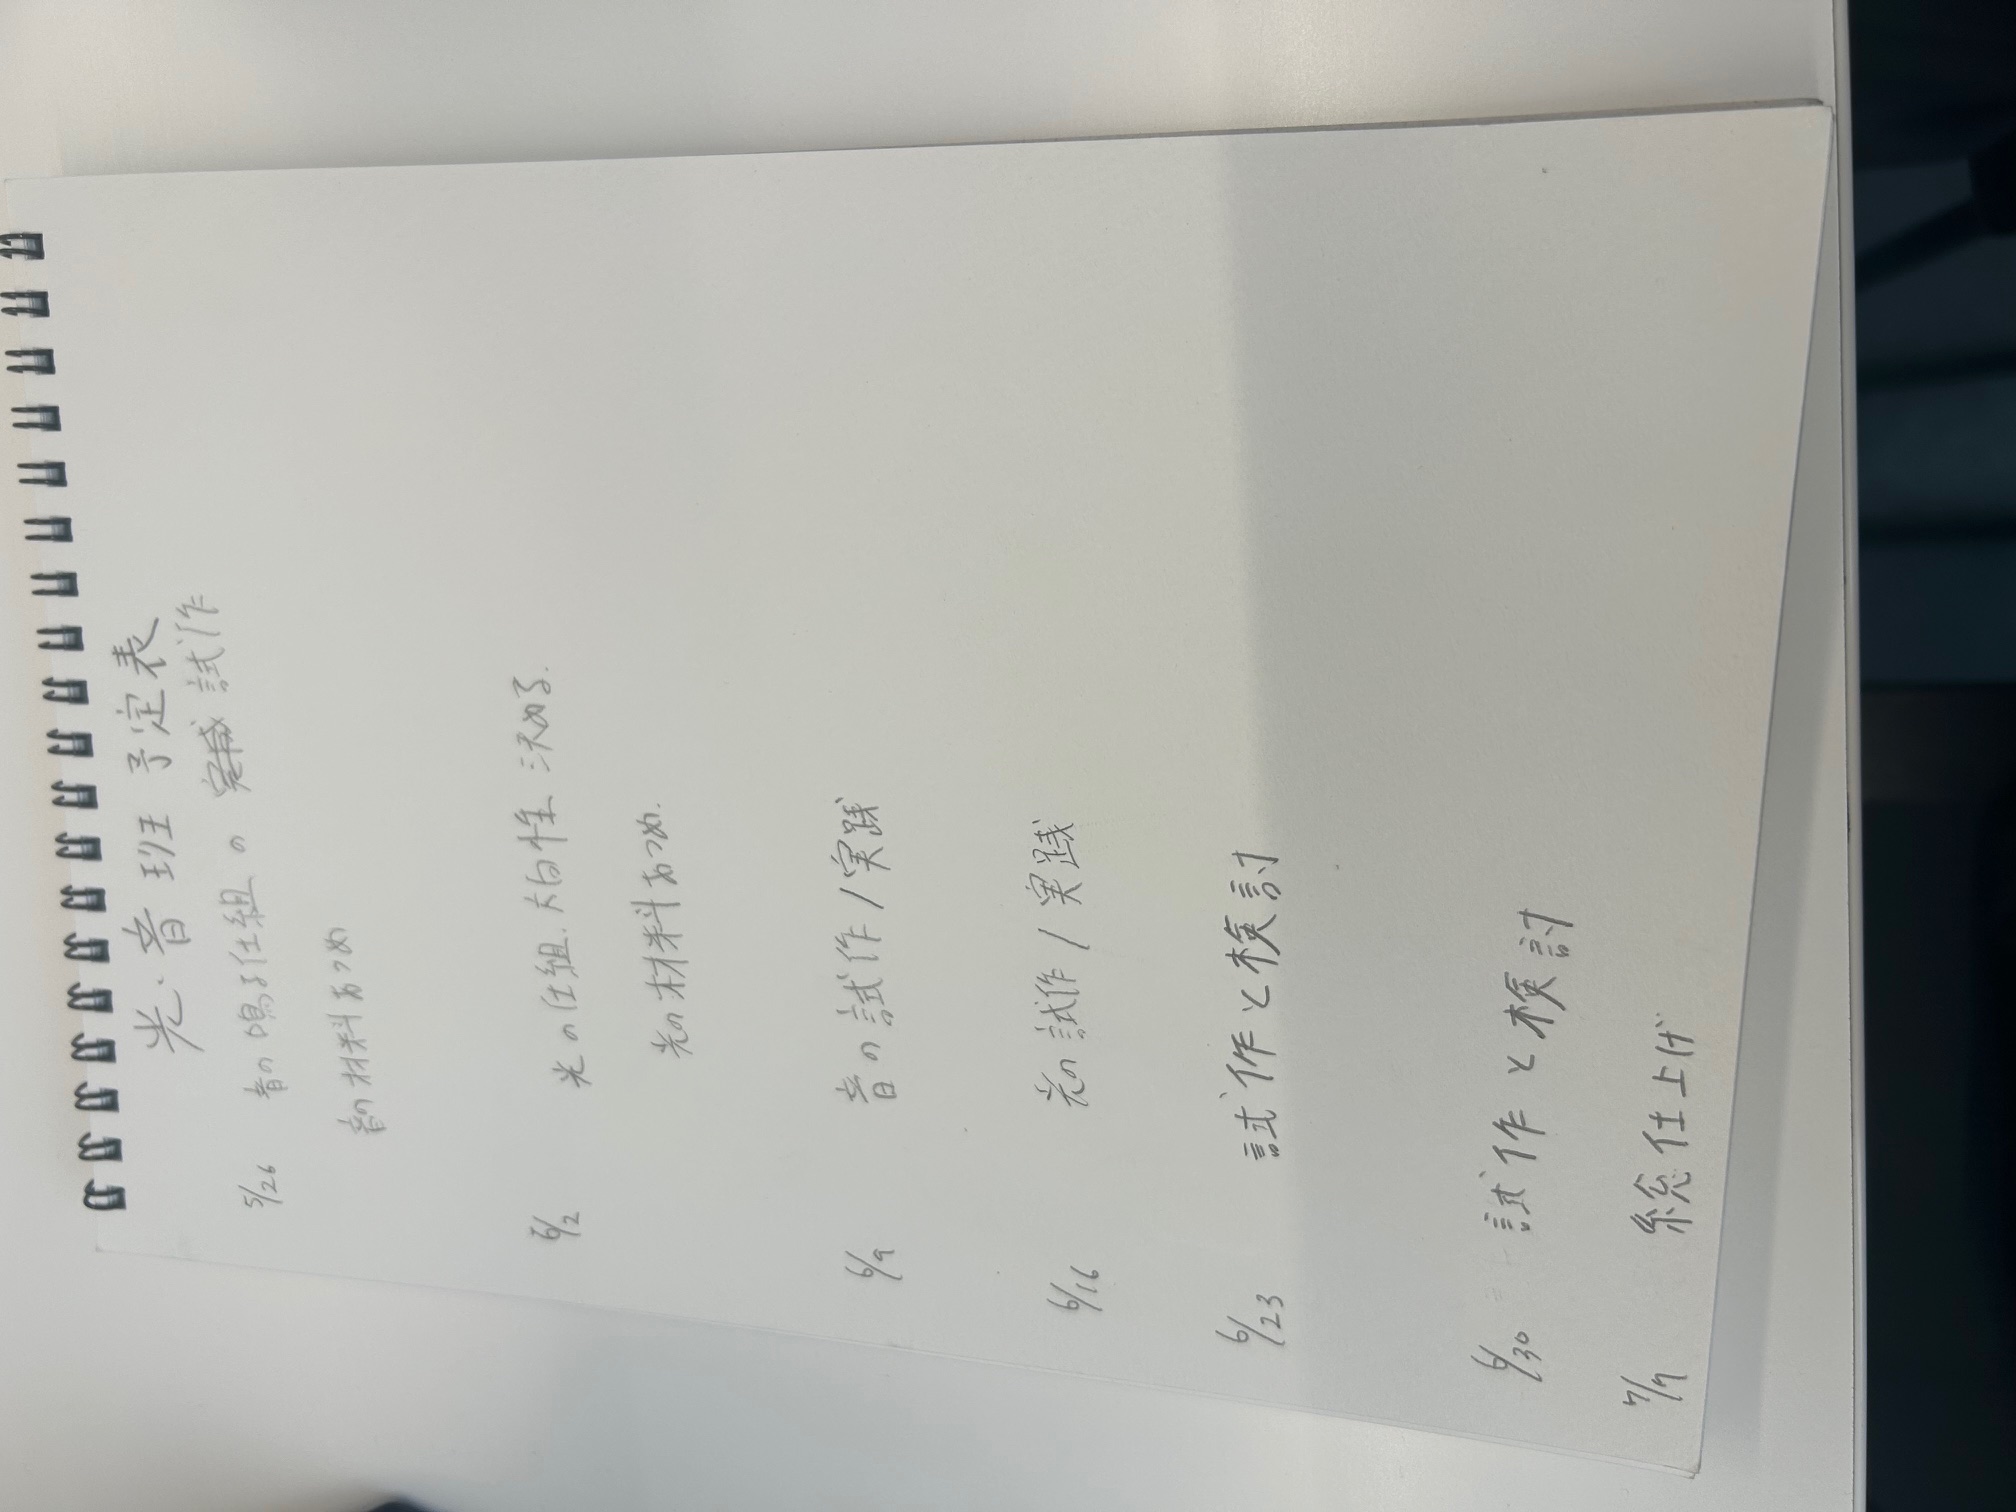 光・音 班 予定表
5/26 音の鳴る仕組の 試作
音の材料あつめ
6/2 光の仕組、方向性 決める.
光の材料あつめ.
6/9 音の試作/実践
6/16 光の試作/実践
6/23 試作と検討
6/30 試作と検討
7/7 総仕上げ